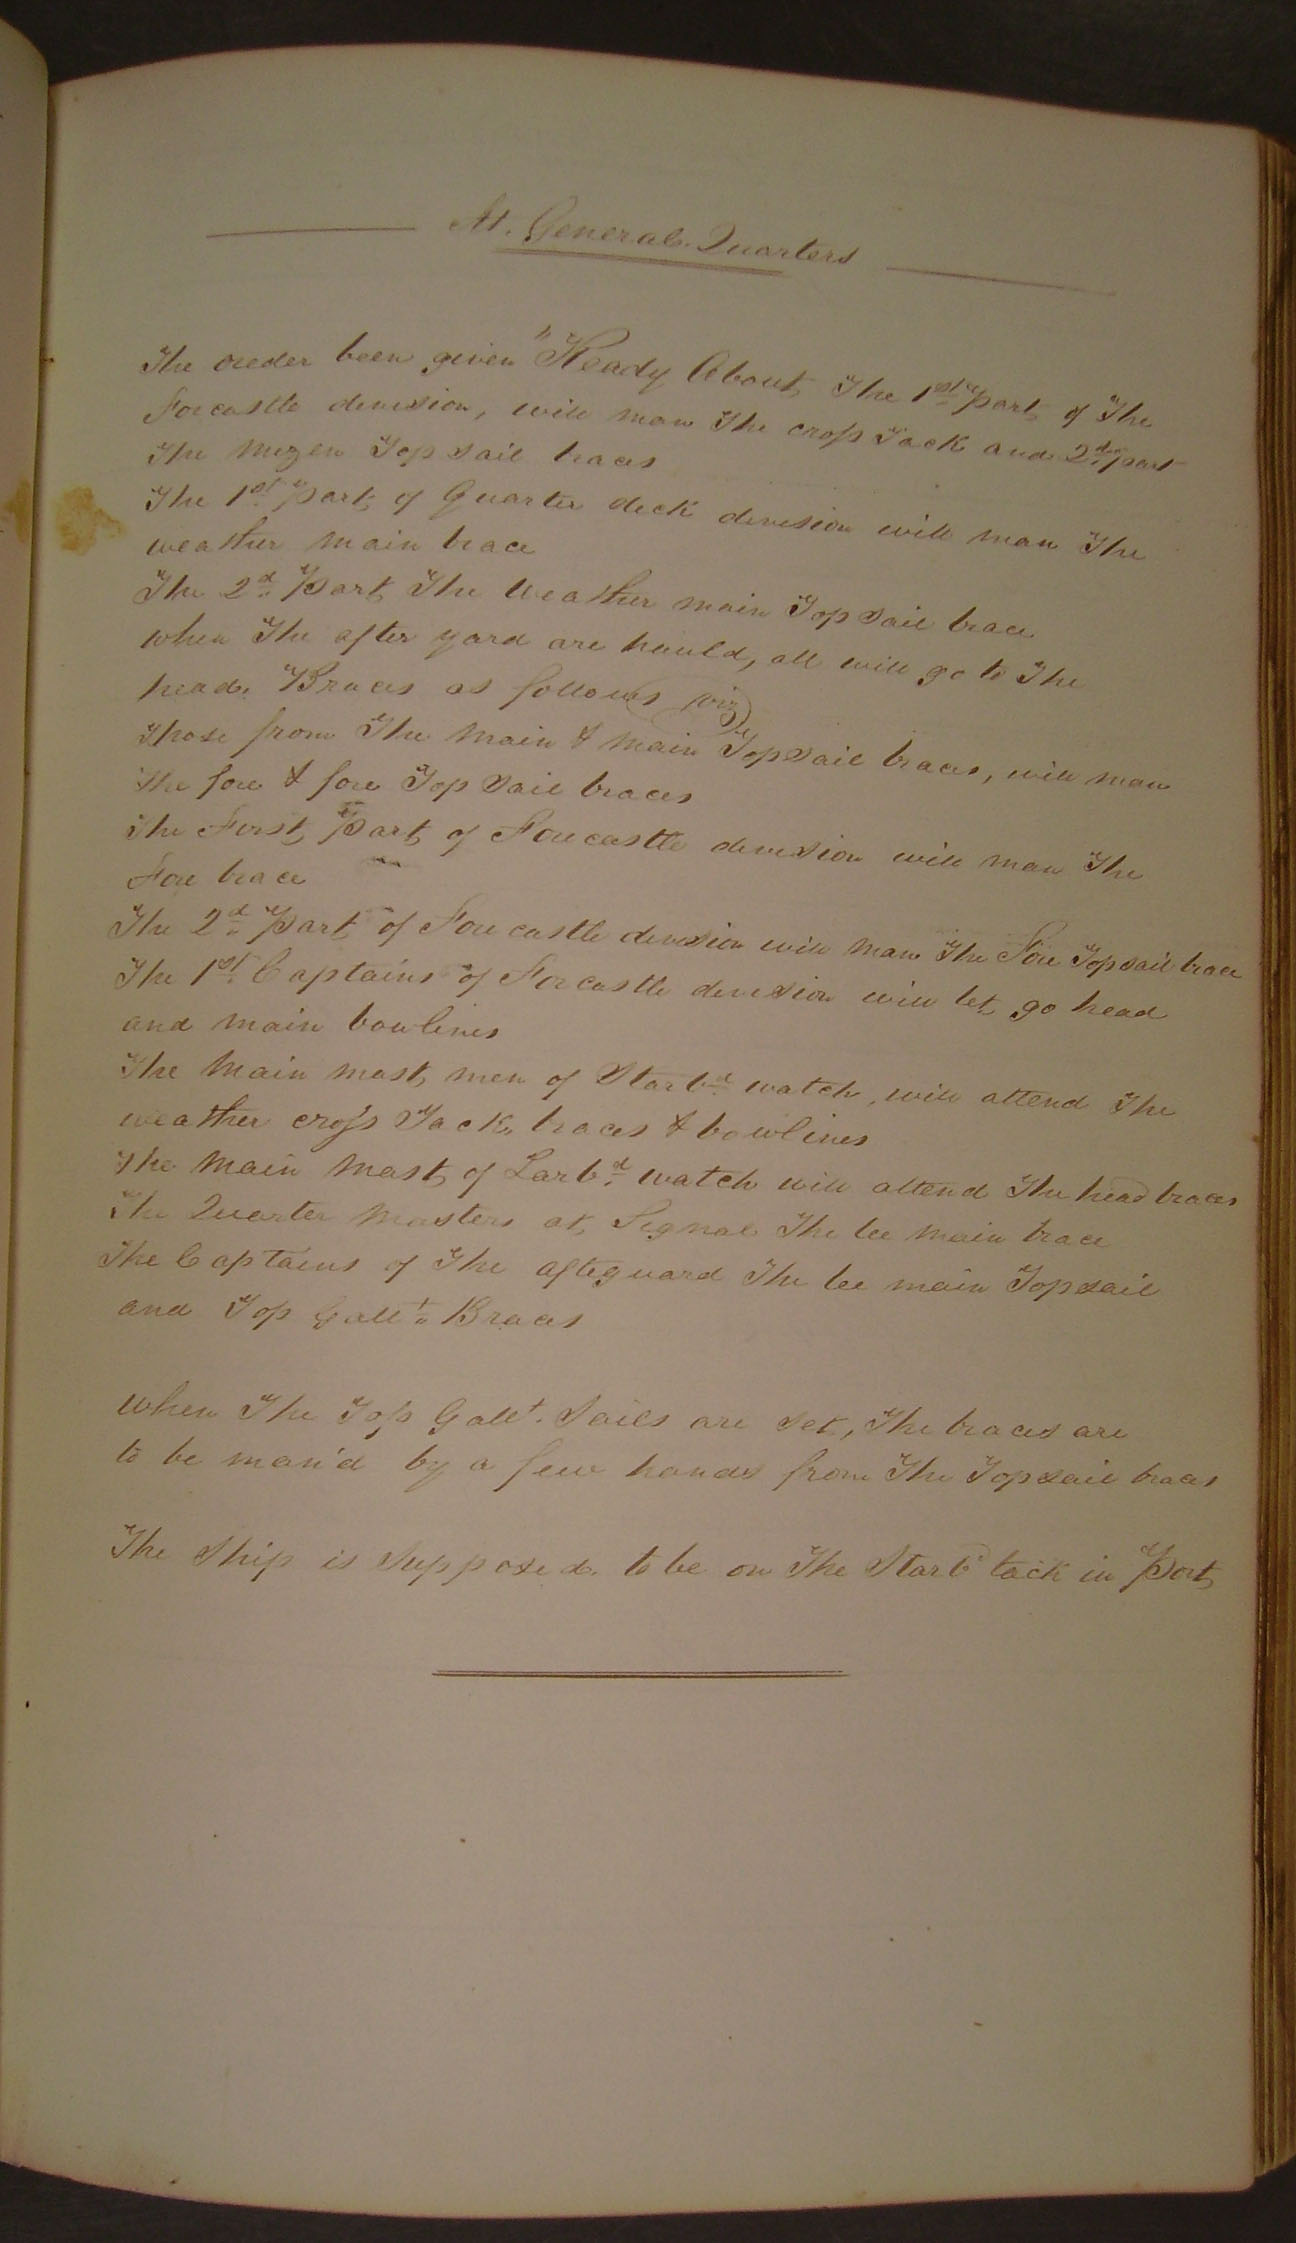 At. General Quarters
The order been given "Ready About The 1st part of The
Forcastle devision, will man The cross Jack and 2d part
The Mizen Top Sail braces
The 1st part of Quarter deck devision will man The
weather main brace
The 2d Part The Weather main Top Sail brace
when The after yard are hauld, all will go to The
head. Braces as follows (viz)
Those from The Main & Main Topsail braces, will man
The fore & fore Top Sail braces
The First Part of Forecastle devision will man The
Fore brace
The 2d Part of Fore castle devision will man The Fore Topsail brace
The 1st Captains of Forcastle devision will let go head
and main bowlines
The Main mast men of Starbd watch, will attend The
weather cross Jack braces & bowlines
The Main Mast of Larbd watch will attend The head braces
The Quarter Masters at Signal The lee Main brace
The Captains of The afteguard The lee main Topsail
and Top Gallt Braces
when The Top Gallt. Sails are set, The braces are
to be man'd by a few hands from The Topsail braces
The Ship is supposed to be on The Starbd tack in Port